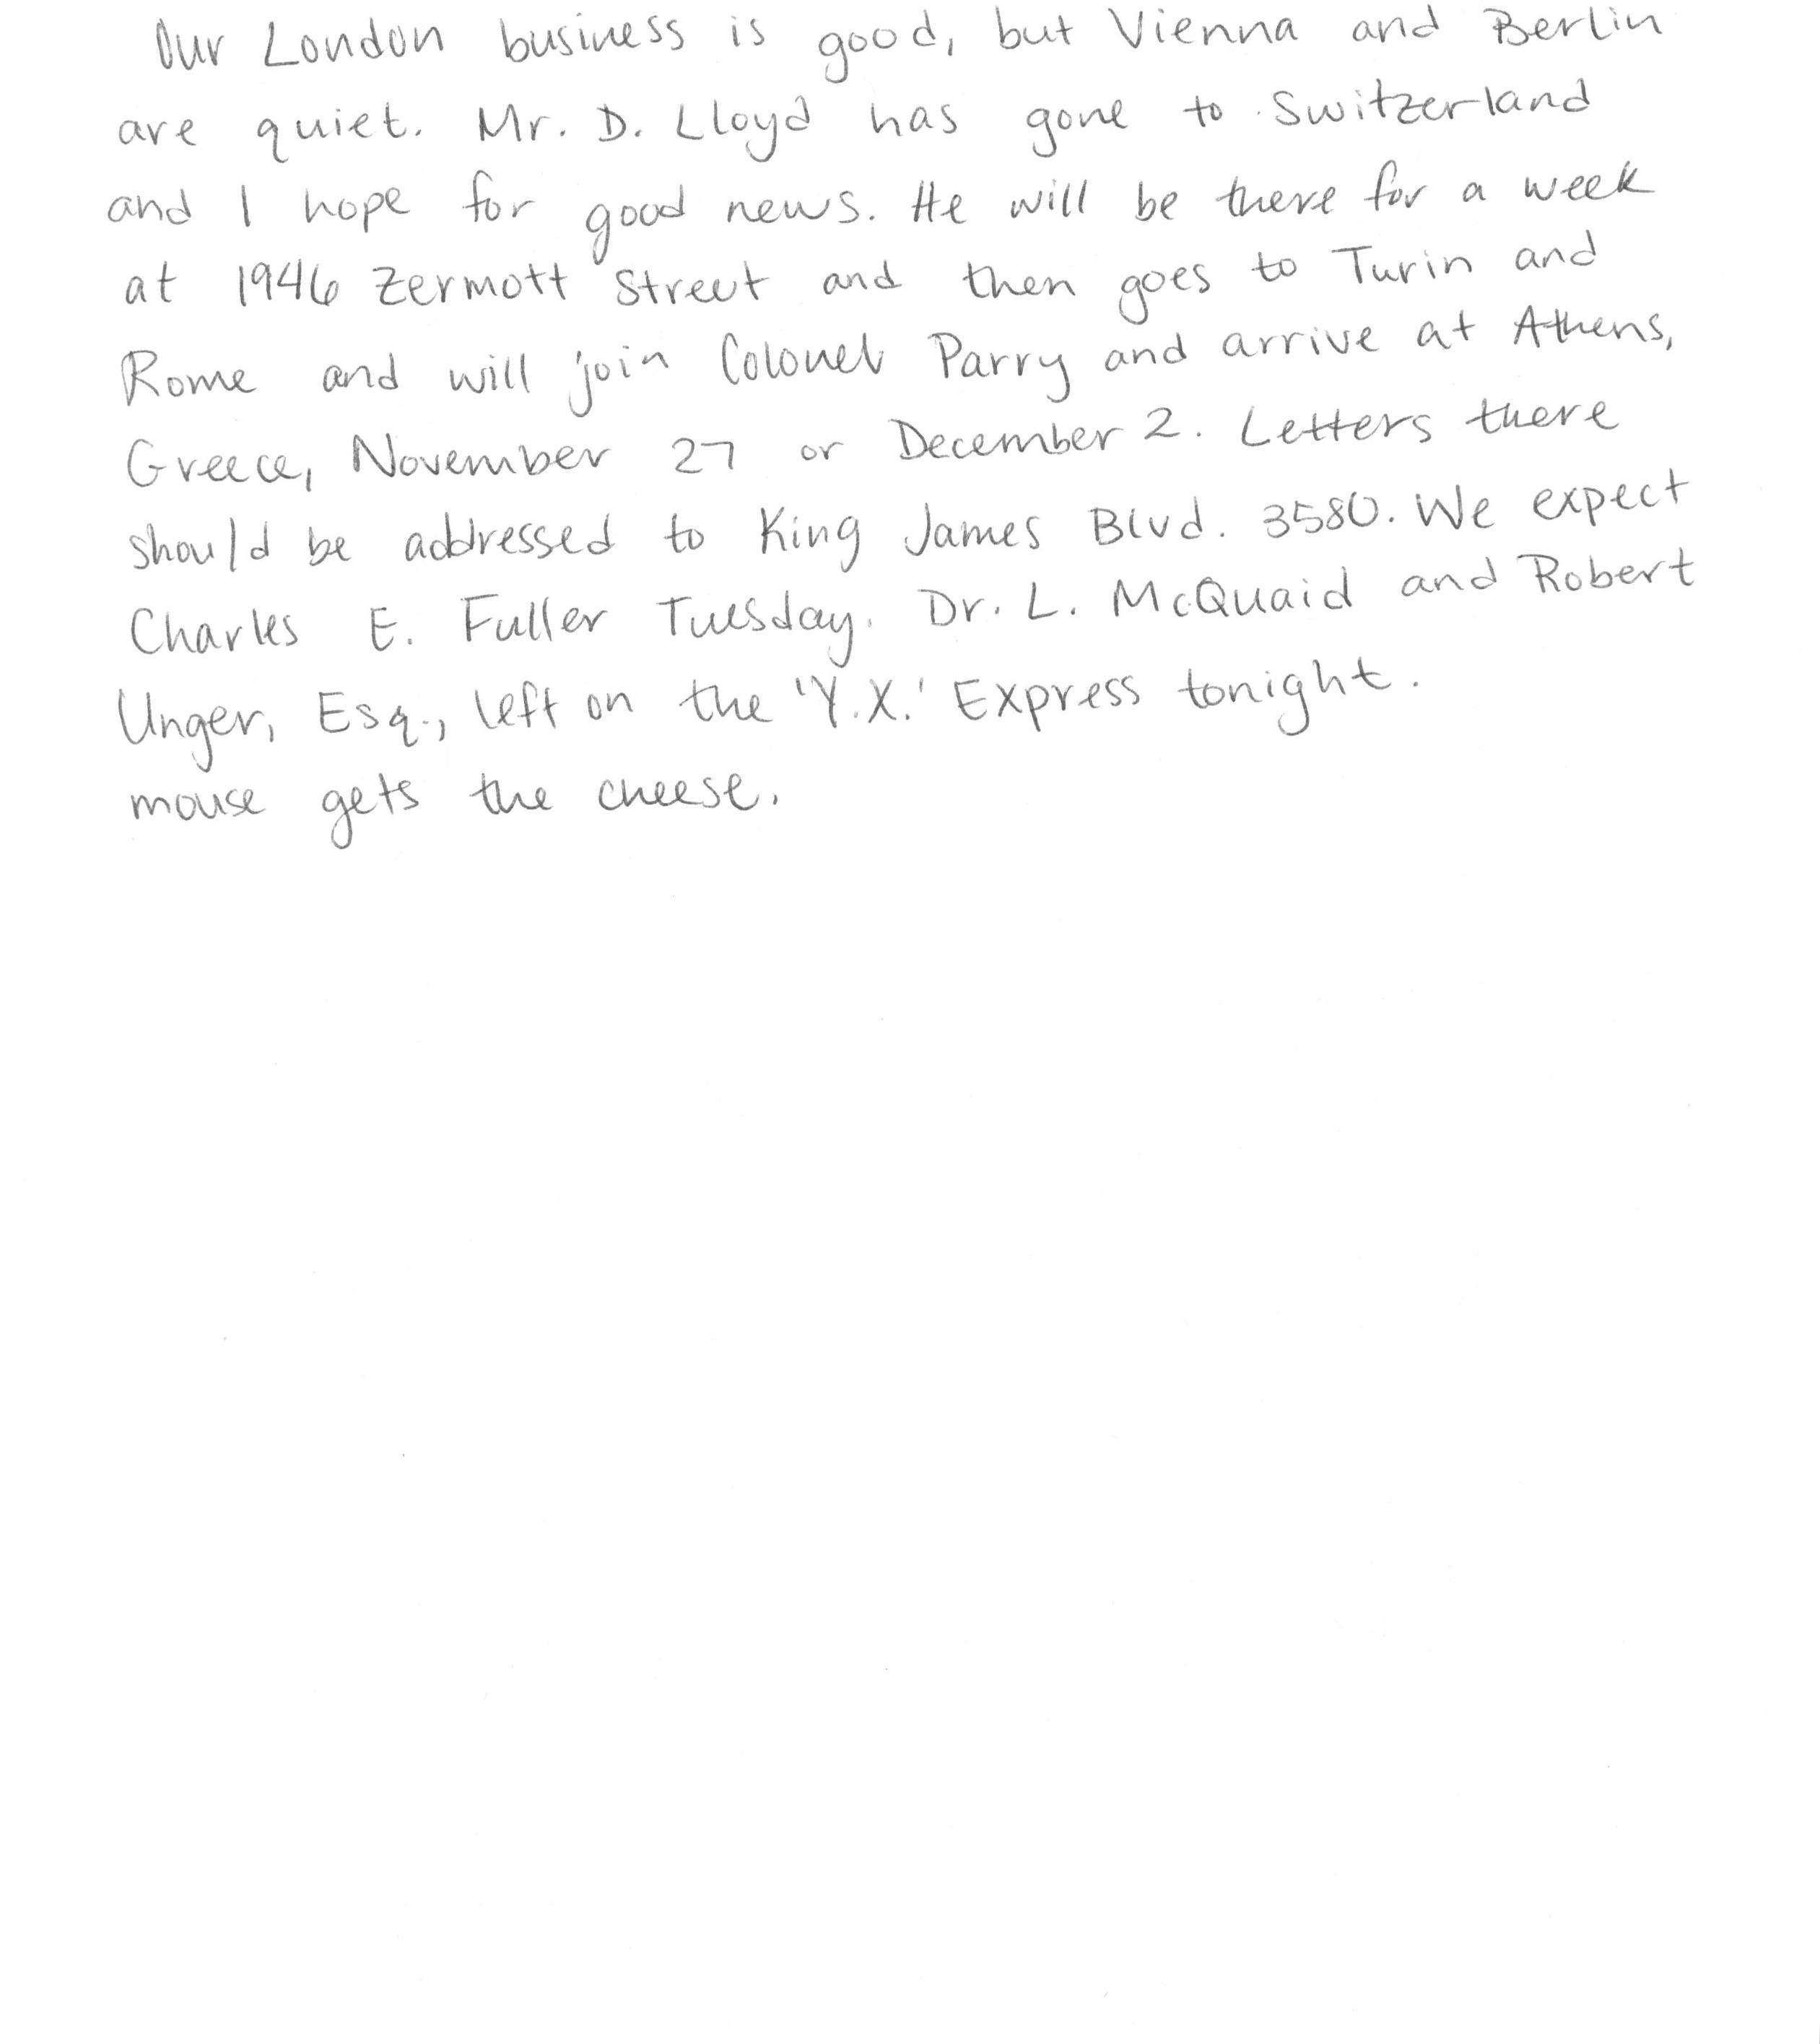 Our London business is good, but Vienna and Berlin
are quiet. Mr. D. Lloyd has gone to Switzerland
and I hope for good news. He will be there for a week
at 1946 Zermott Street and then goes to Turin and
Rome and will join Colonel Parry and arrive at Athens,
Greece, November 27 or December 2. Letters there
should be addressed to King James Blvd. 3580. We expect
Charles E. Fuller Tuesday. Dr. L. McQuaid and Robert
Unger, Esq., left on the 'Y.X.' Express tonight.
mouse gets the cheese.